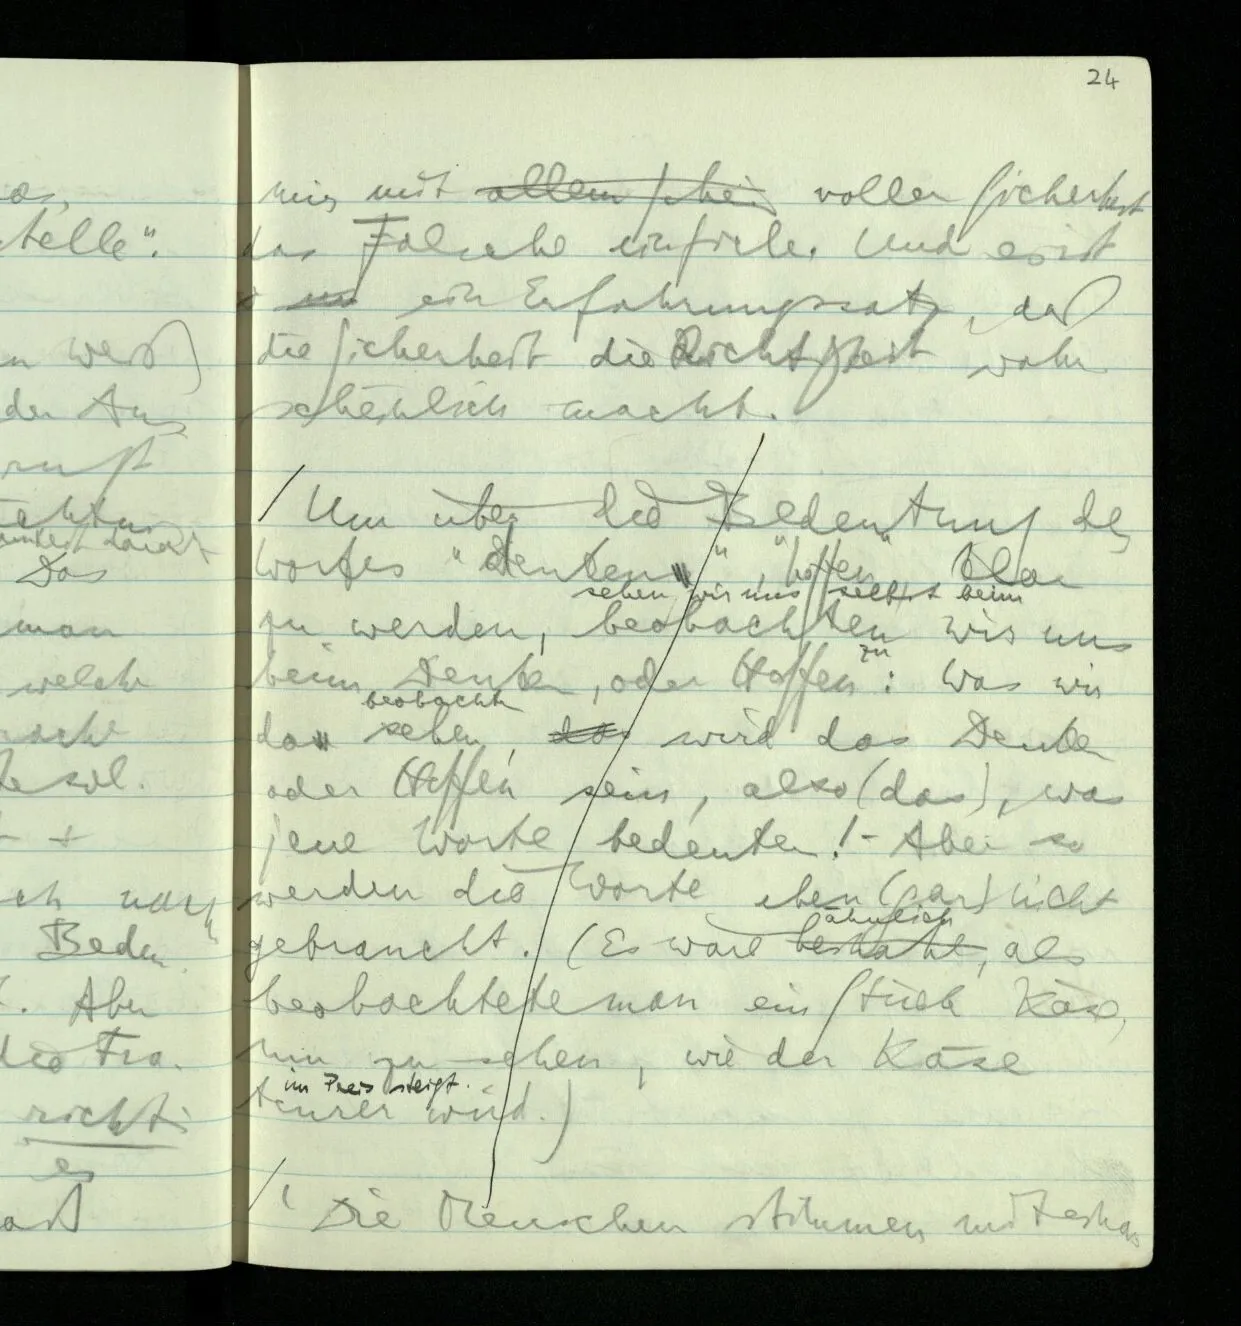 24
as,
telle".
n weiß)
der Aus
ruft
Das
man
welche
macht
te sol.
- +
ch nach
Bedeu
. Aber
die Fra-
richti
es
mir mit allem schei voller Sicherheit
das Falsche einfiele. Und es ist
ein Erfahrungssatz, daß
die Sicherheit die Richtigkeit wahr
scheinlich macht.
/ Um über die Bedeutung des
Wortes "denken", "hoffen" klar
sehen wir uns selbst beim
zu werden, beobachten wir uns
zu
beim Denken, oder Hoffen: Was wir
beobachten
da sehen, das wird das Denken
oder Hoffen sein, also (das), was
jene Worte bedeuten! - Aber so
werden die Worte eben (gar) nicht
ähnlich
gebraucht. (Es wäre, als
beobachtete man ein Stück Käse,
um zu sehen, wie der Käse
im Preis steigt.
teurer wird.)
/ Die Menschen stimmen miteinan